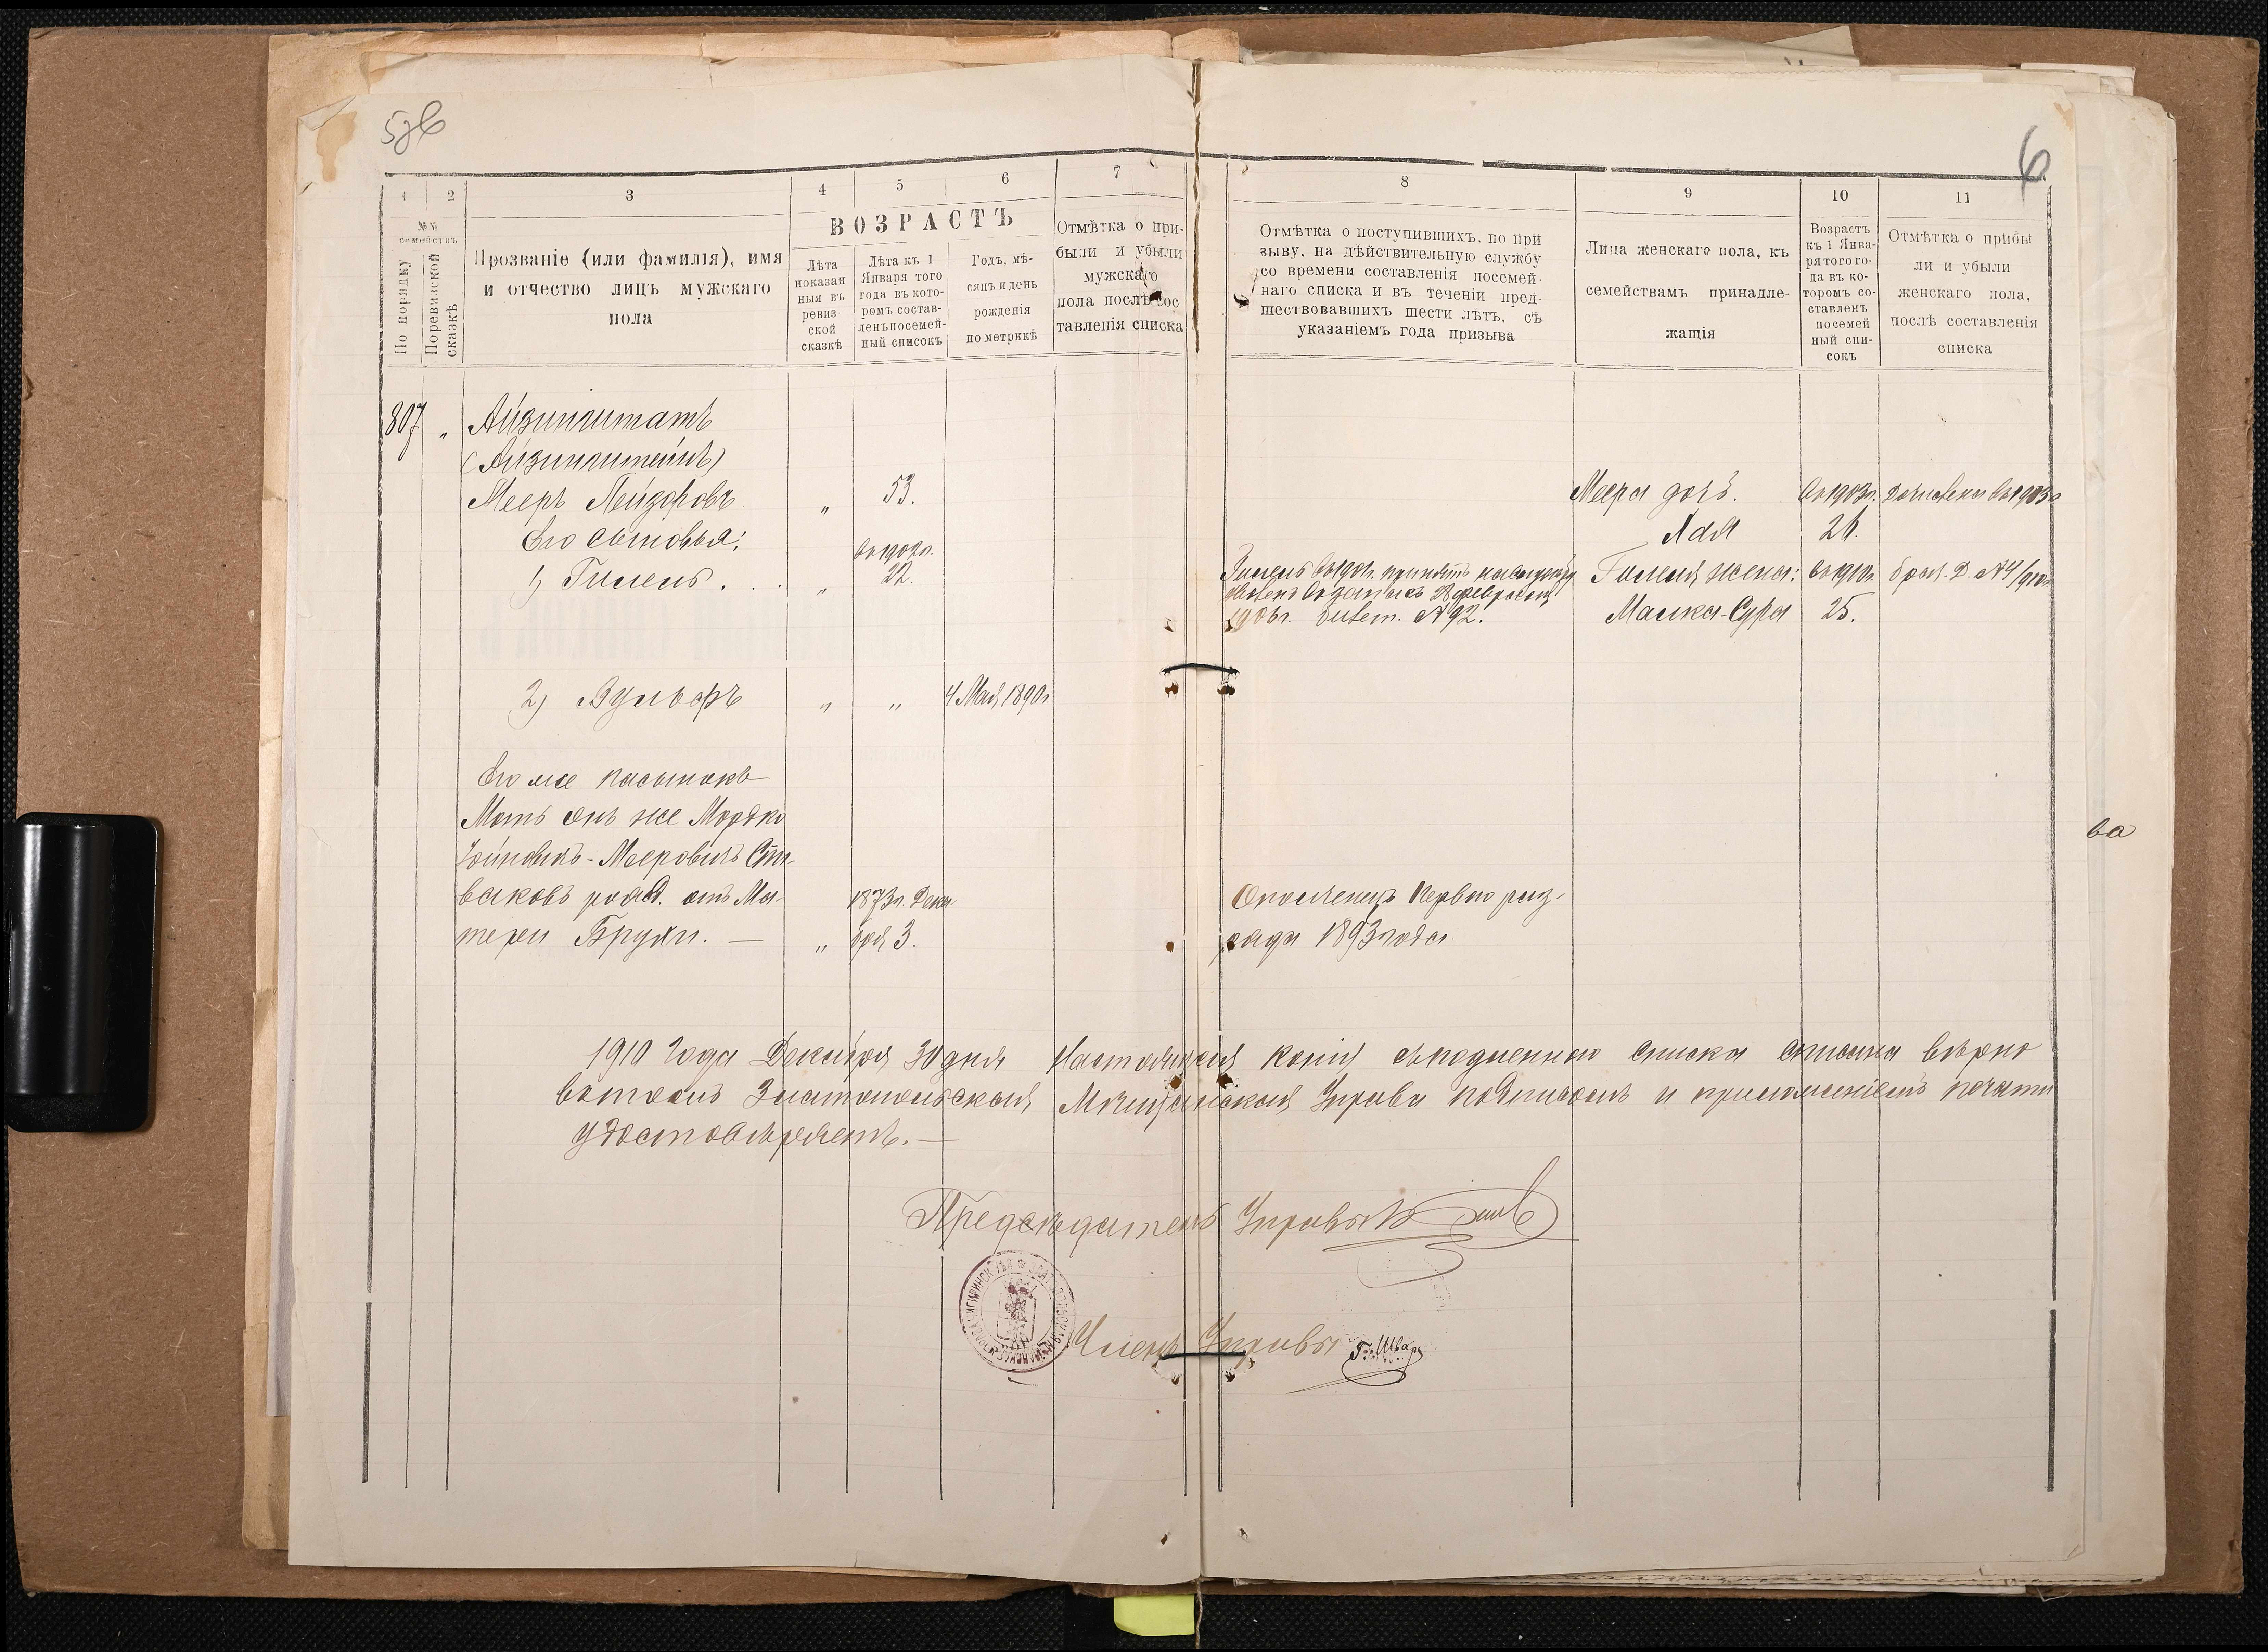 5зв
6
1
2
3
4
5
6
7
8
9
10
11
№№
семействъ
По порядку
По ревизской
сказкѣ
Прозваніе (или фамилія), имя
и отчество лицъ мужскаго
пола
ВОЗРАСТЪ
Лѣта
показан
ныя въ
ревиз-
ской
сказкѣ
Лѣта къ 1
Января того
года въ кото-
ромъ состав-
ленъ посемей-
ный списокъ
Годъ, мѣ-
сяцъ и день
рожденія
по метрикѣ
Отмѣтка о при-
были и убыли
мужскаго
пола послѣ сос
тавленія списка
Отмѣтка о поступившихъ, по при
зыву, на дѣйствительную службу
со времени составленія посемей-
наго списка и въ теченіи пред-
шествовавшихъ шести лѣтъ, съ
указаніемъ года призыва
Лица женскаго пола, къ
семействамъ принадле-
жащія
Возрастъ
къ 1 Янва-
ря того го-
да въ ко-
торомъ со-
ставленъ
посемей
ный спи-
сокъ
Отмѣтка о прибы
ли и убыли
женскаго пола,
послѣ составленія
списка
807 „ Айзинштатъ
(Айзинштейнъ)
Мееръ Лейзоровъ „ 53.
Меера дочь. въ 1903г. 1903г
Его сыновья:
Хая 21.
въ 1902г.
1) Гилель. „ 22.
Гилель въ 1901г. принятъ на службу
уволенъ въ запасъ 28 февраля
1906г. билет. №92.
Гилеля жена: въ 1910г. брач. Д. №4/910г
Малка-Сура 25.
2) Вульфъ „ „ 4 Мая 1890г
Его же пасынокъ
Мотъ онъ же Мордко
Мееровичъ Спи-
ваковъ рожд. отъ Ма- 1873г. Дека
тери Брухи. — „ бря 3.
Ополченецъ Первого раз-
ряда 1893 года
1910 года Декабря 30 дня Настоящая копія списка списана вѣрно
въ томъ Златопольская Мѣщанская Управа подписомъ и приложеніемъ печати
удостовѣряетъ. —
Предсѣдатель Управы
Членъ Управы Г. Швар
ва